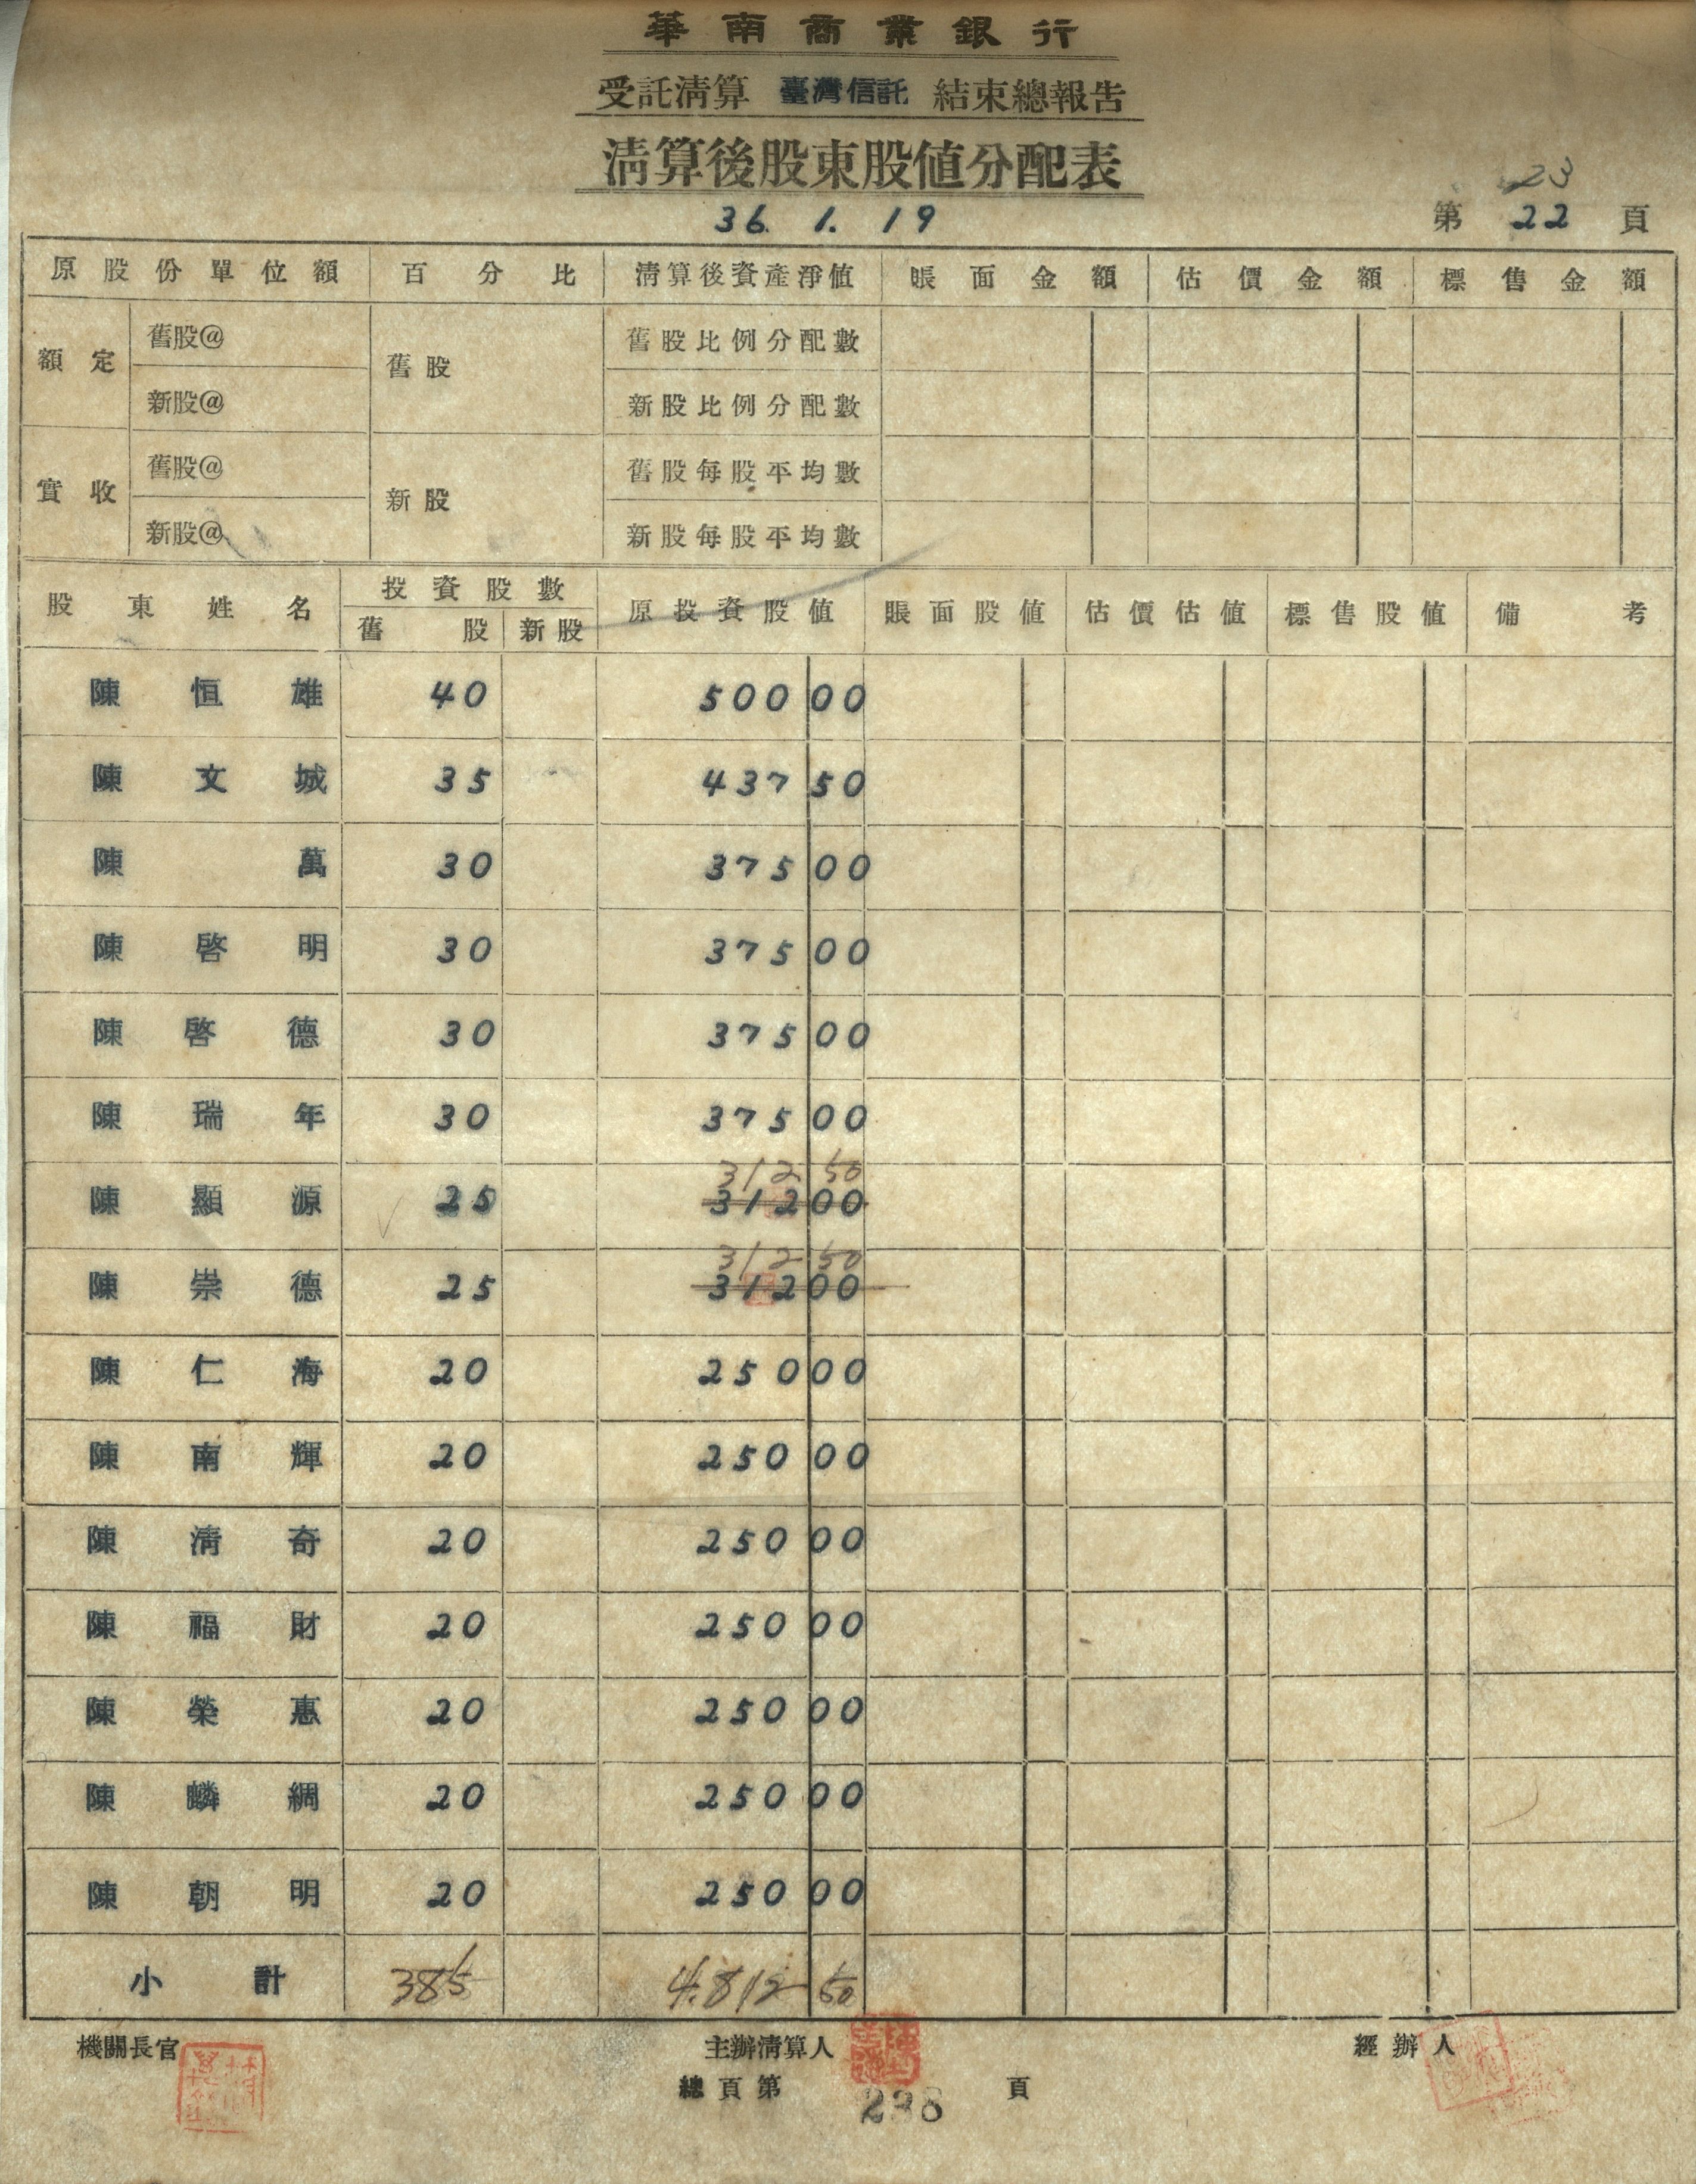 華南商業銀行
受託清算 臺灣信託 結束總報告
清算後股東股值分配表
23
36. 1. 19 第 22 頁
原股份單位額 百分比 清算後資產淨值 賬面金額 估價金額 標售金額
額定 舊股@ 舊股 舊股比例分配數
新股@ 新股比例分配數
實收 舊股@ 新股 舊股每股平均數
新股@ 新股每股平均數
股東姓名 投資股數 原投資股值 賬面股值 估價估值 標售股值 備考
舊股 新股
陳恒雄 40 500 00
陳文城 35 437 50
陳萬 30 375 00
陳啓明 30 375 00
陳啓德 30 375 00
陳瑞年 30 375 00
312 50
陳顯源 25 312 00
312 50
陳崇德 25 312 00
陳仁海 20 250 00
陳南輝 20 250 00
陳清奇 20 250 00
陳福財 20 250 00
陳榮惠 20 250 00
陳麟綢 20 250 00
陳朝明 20 250 00
小計 385 4,812 50
機關長官 主辦清算人 經辦人
總頁第 298 頁